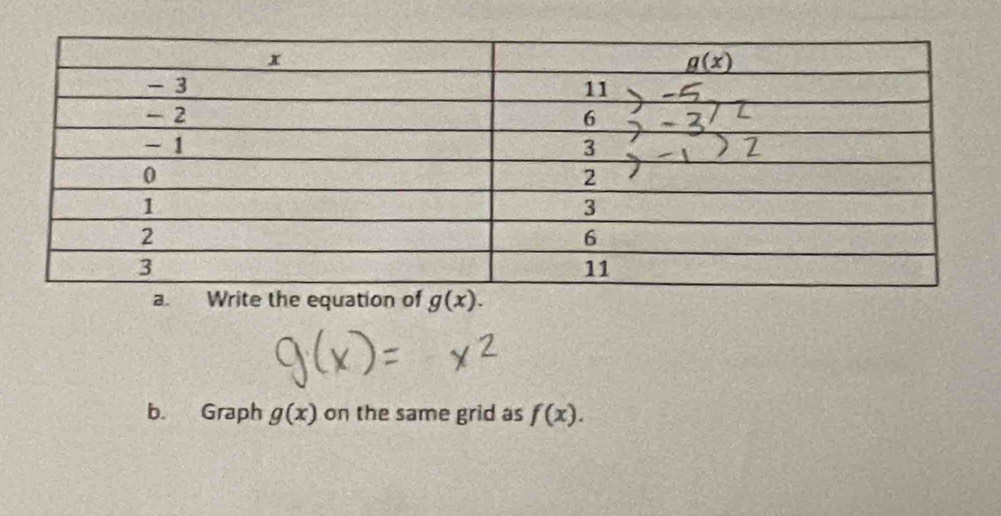 x g(x)
- 3 11 > -5
- 2 6 > -3 > 2
- 1 3 > -1 > 2
0 2
1 3
2 6
3 11
a. Write the equation of g(x).
g(x) = x²
b. Graph g(x) on the same grid as f(x).